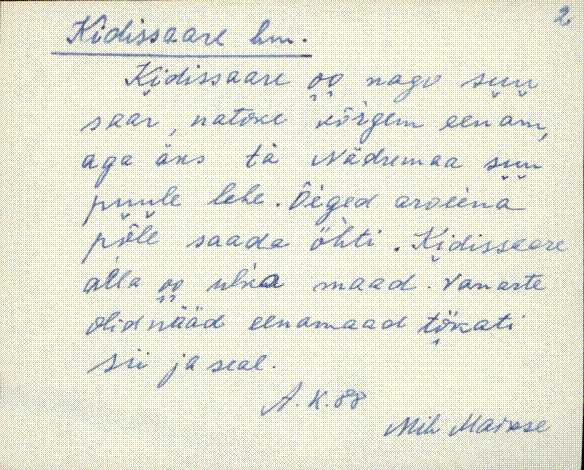 2.
Kidissaare hm.
Kidissaare oo nagu suu
saar, natoke körgem eenam,
aga äks ta Nädremaa suu
puule lehe. Õiged aroeina
põle saada öhti. Kidissaare
alla oo ulka maad. Vanaste
olid nääd eenamaad tökati
sii ja seal.
A. K. 88
Mih